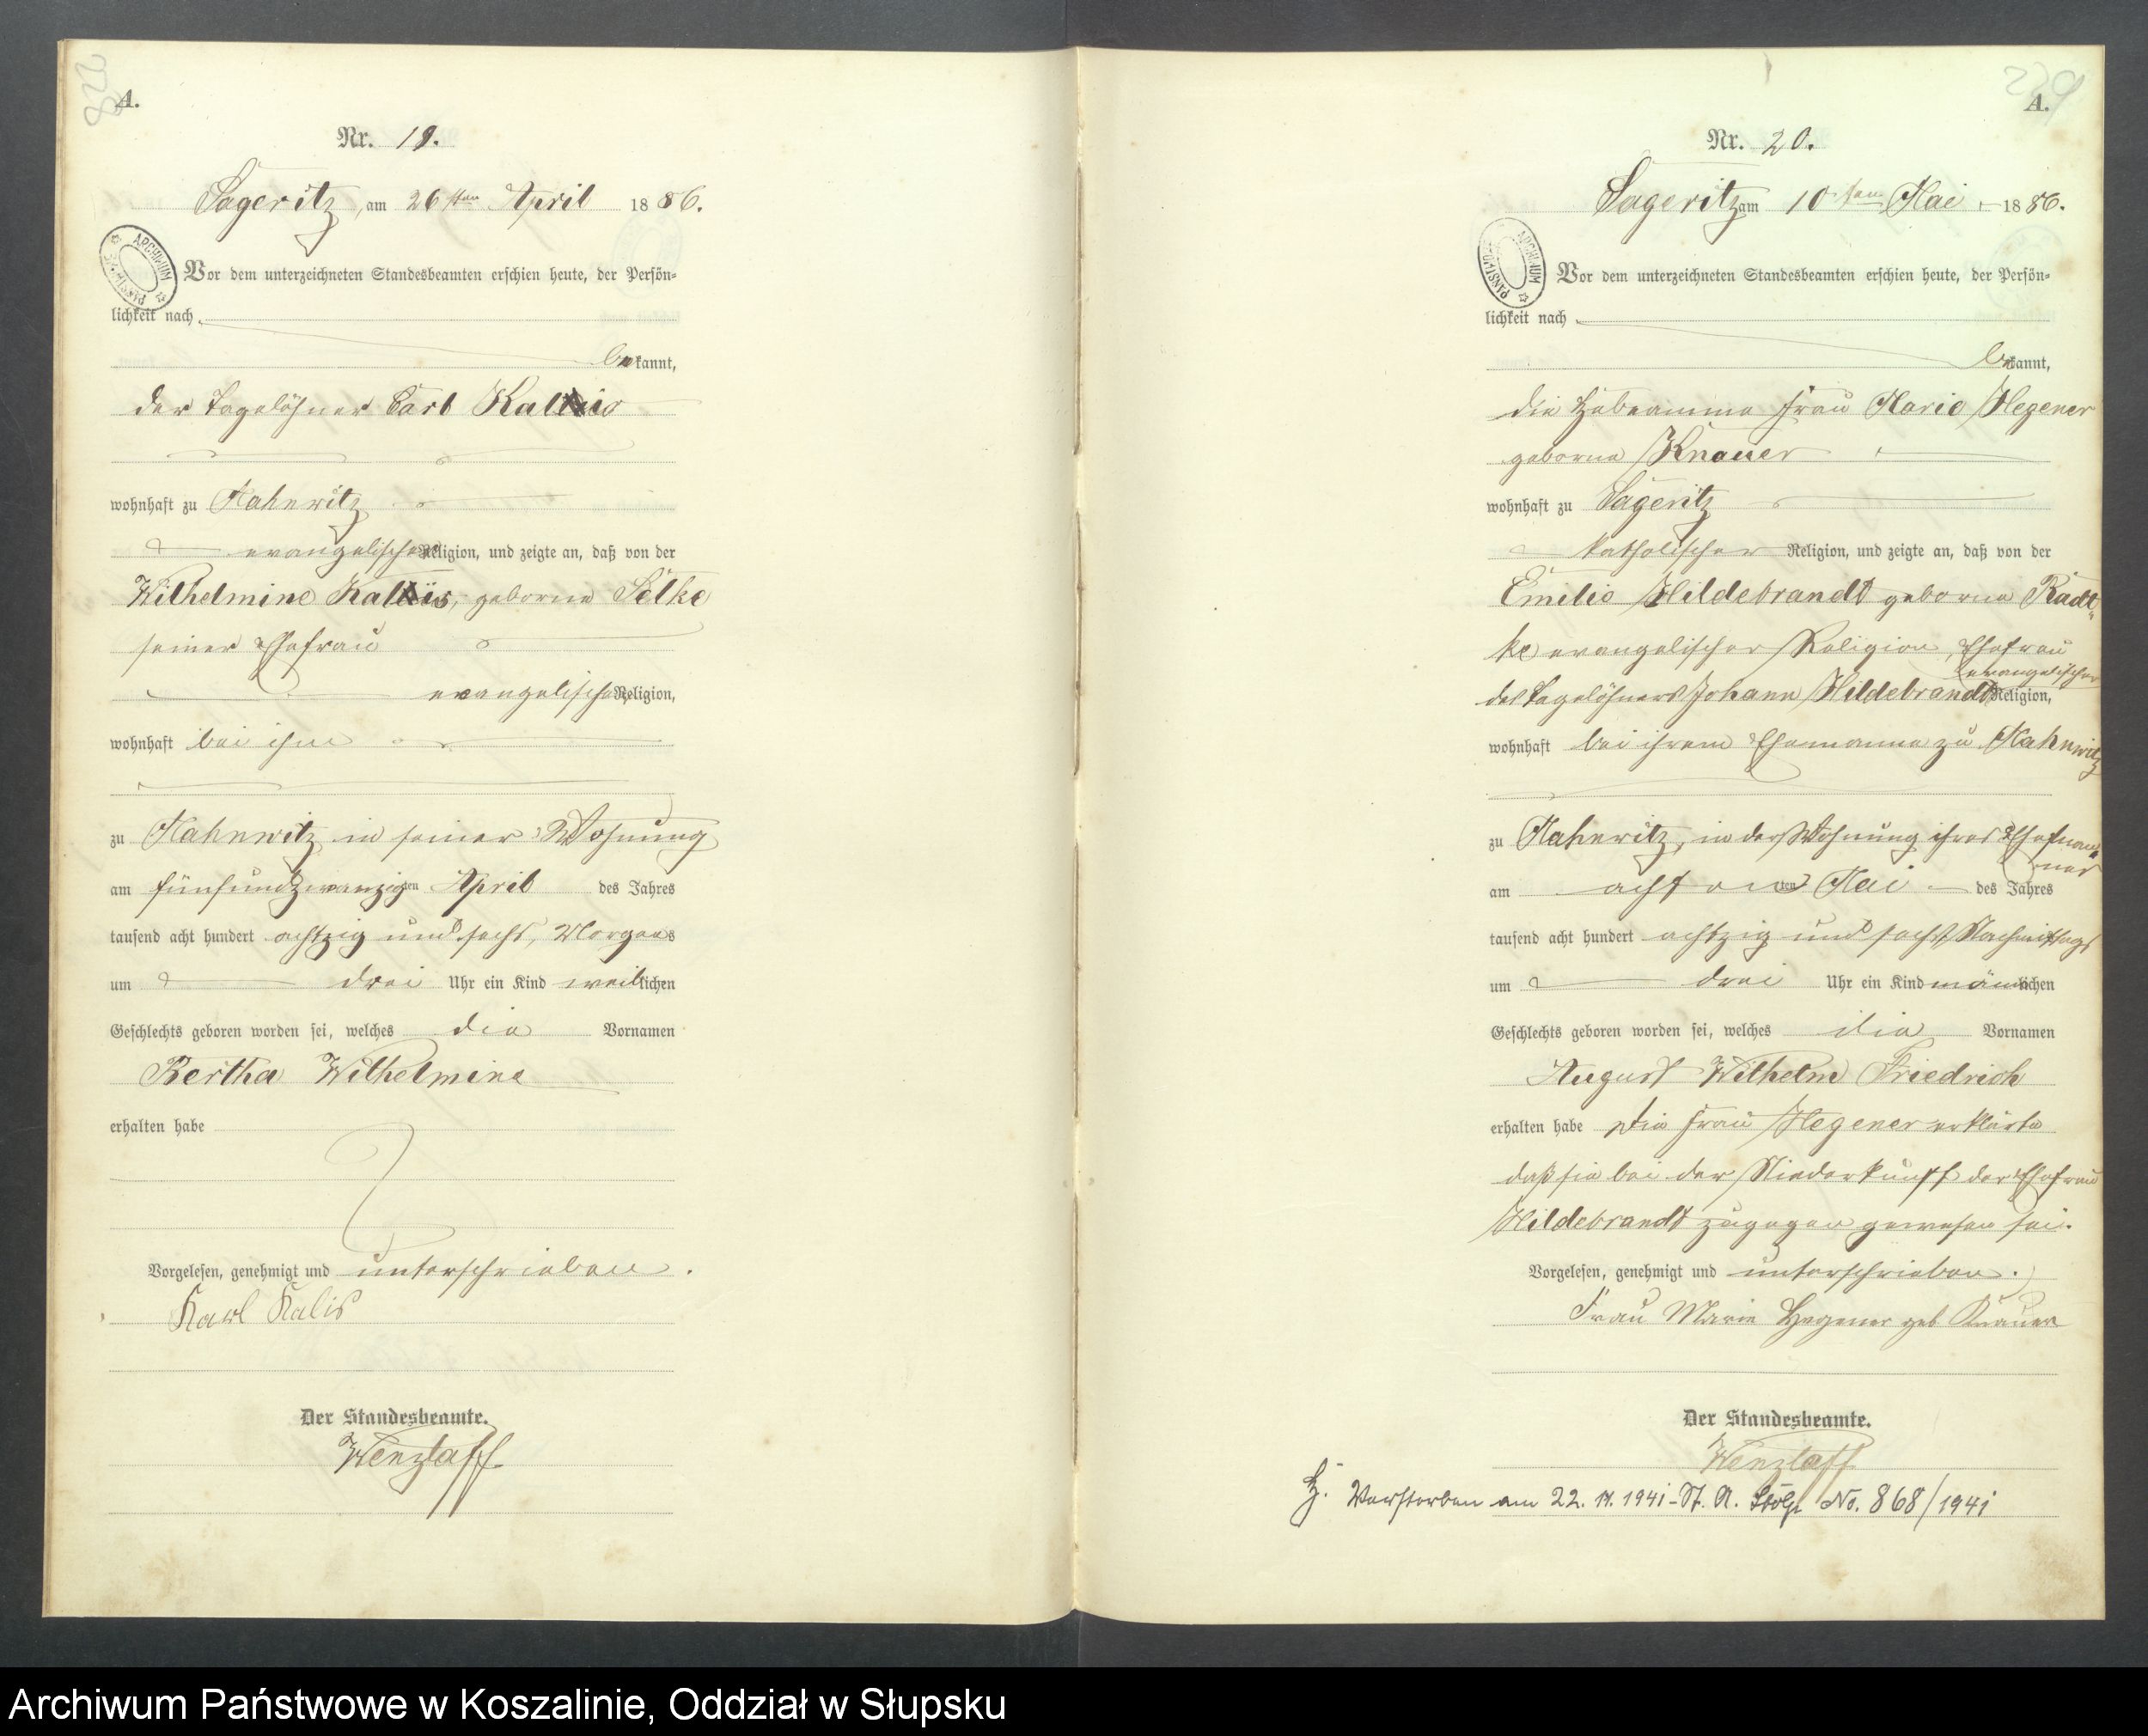 228
A.
Nr. 19.
Sageritz, am 26ten April 1886.
ARCHIWUM
Vor dem unterzeichneten Standesbeamten erschien heute, der Persön=
lichkeit nach
bekannt,
der Tagelöhner Carl
wohnhaft zu Mahnwitz
evangelischer Religion, und zeigte an, daß von der
Wilhelmine geborne Selke
seiner Ehefrau
evangelischer Religion,
wohnhaft bei ihm
zu Mahnwitz in seiner Wohnung
am fünfundzwanzigten April des Jahres
tausend acht hundert achtzig und sechs, Morgens
um drei Uhr ein Kind weiblichen
Geschlechts geboren worden sei, welches die Vornamen
Bertha Wilhelmine
erhalten habe
Vorgelesen, genehmigt und unterschrieben.
Karl Kalis
Der Standesbeamte.
Wenzlaff
229
A.
Nr. 20.
Sageritz am 10ten Mai 1886.
ARCHIWUM
Vor dem unterzeichneten Standesbeamten erschien heute, der Persön=
lichkeit nach
bekannt,
die Hebeamme Frau Marie Hegener
geborne Knauer
wohnhaft zu Sageritz
katholischer Religion, und zeigte an, daß von der
Emilie Hildebrandt geborne Radt=
ke evangelischer Religion, Ehefrau
evangelischer
des Tagelöhners Johann Hildebrandt Religion,
wohnhaft bei ihrem Ehemanne zu Mahnwitz
zu Mahnwitz, in der Wohnung ihres Ehemann=
nes
am achten Mai des Jahres
tausend acht hundert achtzig und sechs Nachmittags
um drei Uhr ein Kind männlichen
Geschlechts geboren worden sei, welches die Vornamen
August Wilhelm Friedrich
erhalten habe Die Frau Hegener erklärte
daß sie bei der Niederkunft der Ehefrau
Hildebrandt zugegen gewesen sei.
Vorgelesen, genehmigt und unterschrieben.
Frau Marie Hegener geb Knauer
Der Standesbeamte.
Wenzlaff
H. Verstorben am 22. 11. 1941 - St. A. Stolp No. 868/1941
Archiwum Państwowe w Koszalinie, Oddział w Słupsku